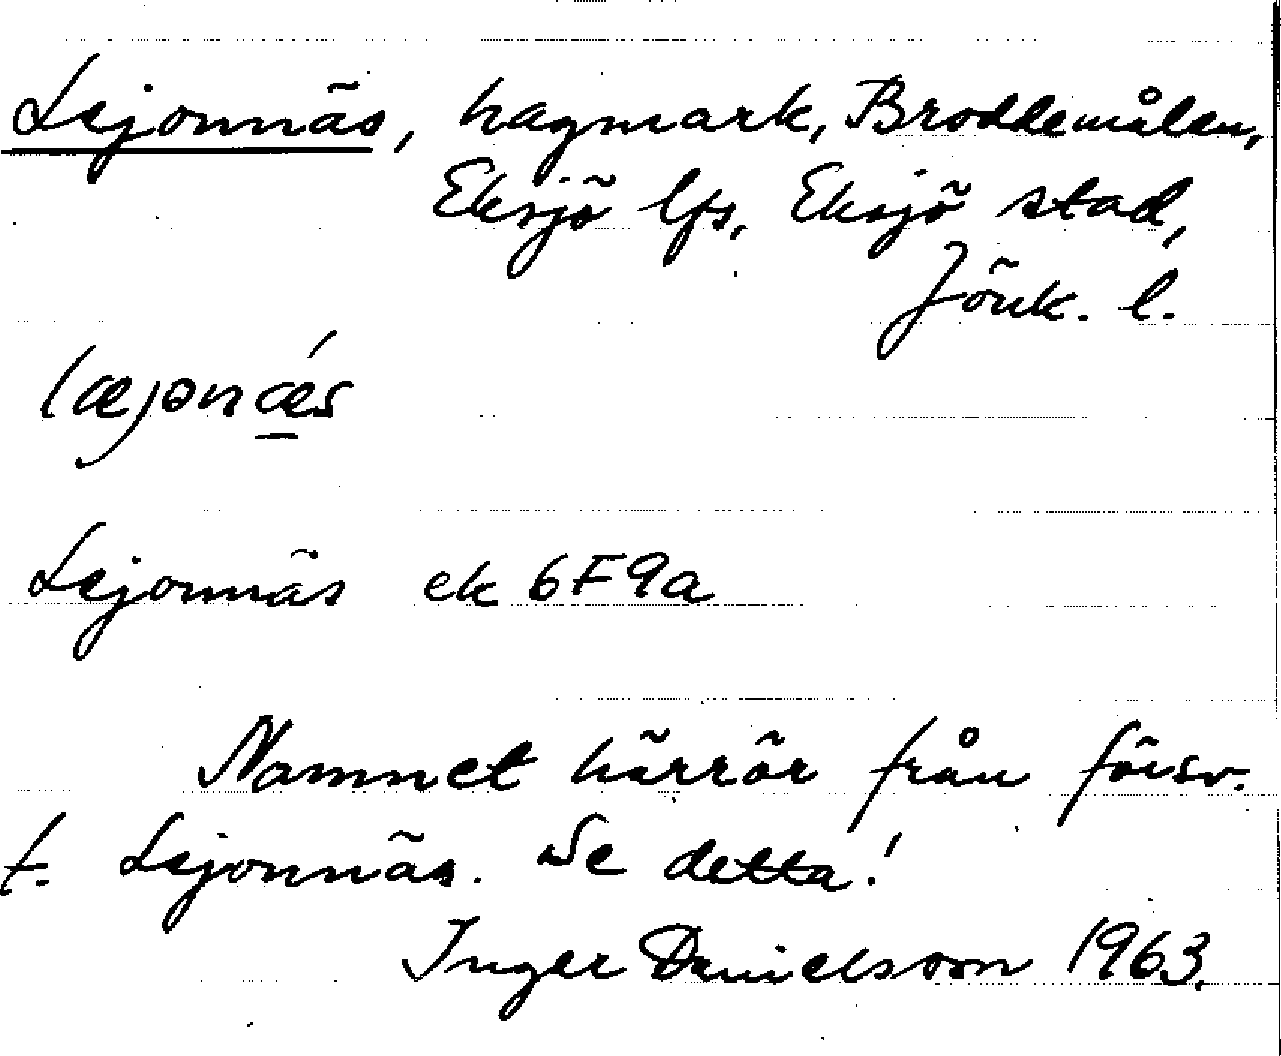 Lejonnäs, hagmark, Broddemålen,
Eksjö lfs, Eksjö stad,
Jönk. l.
læjonǽ̠s
Lejonnäs ek 6F9a
Namnet härrör från försv.
t. Lejonnäs. Se detta!
Inger Danielsson 1963.